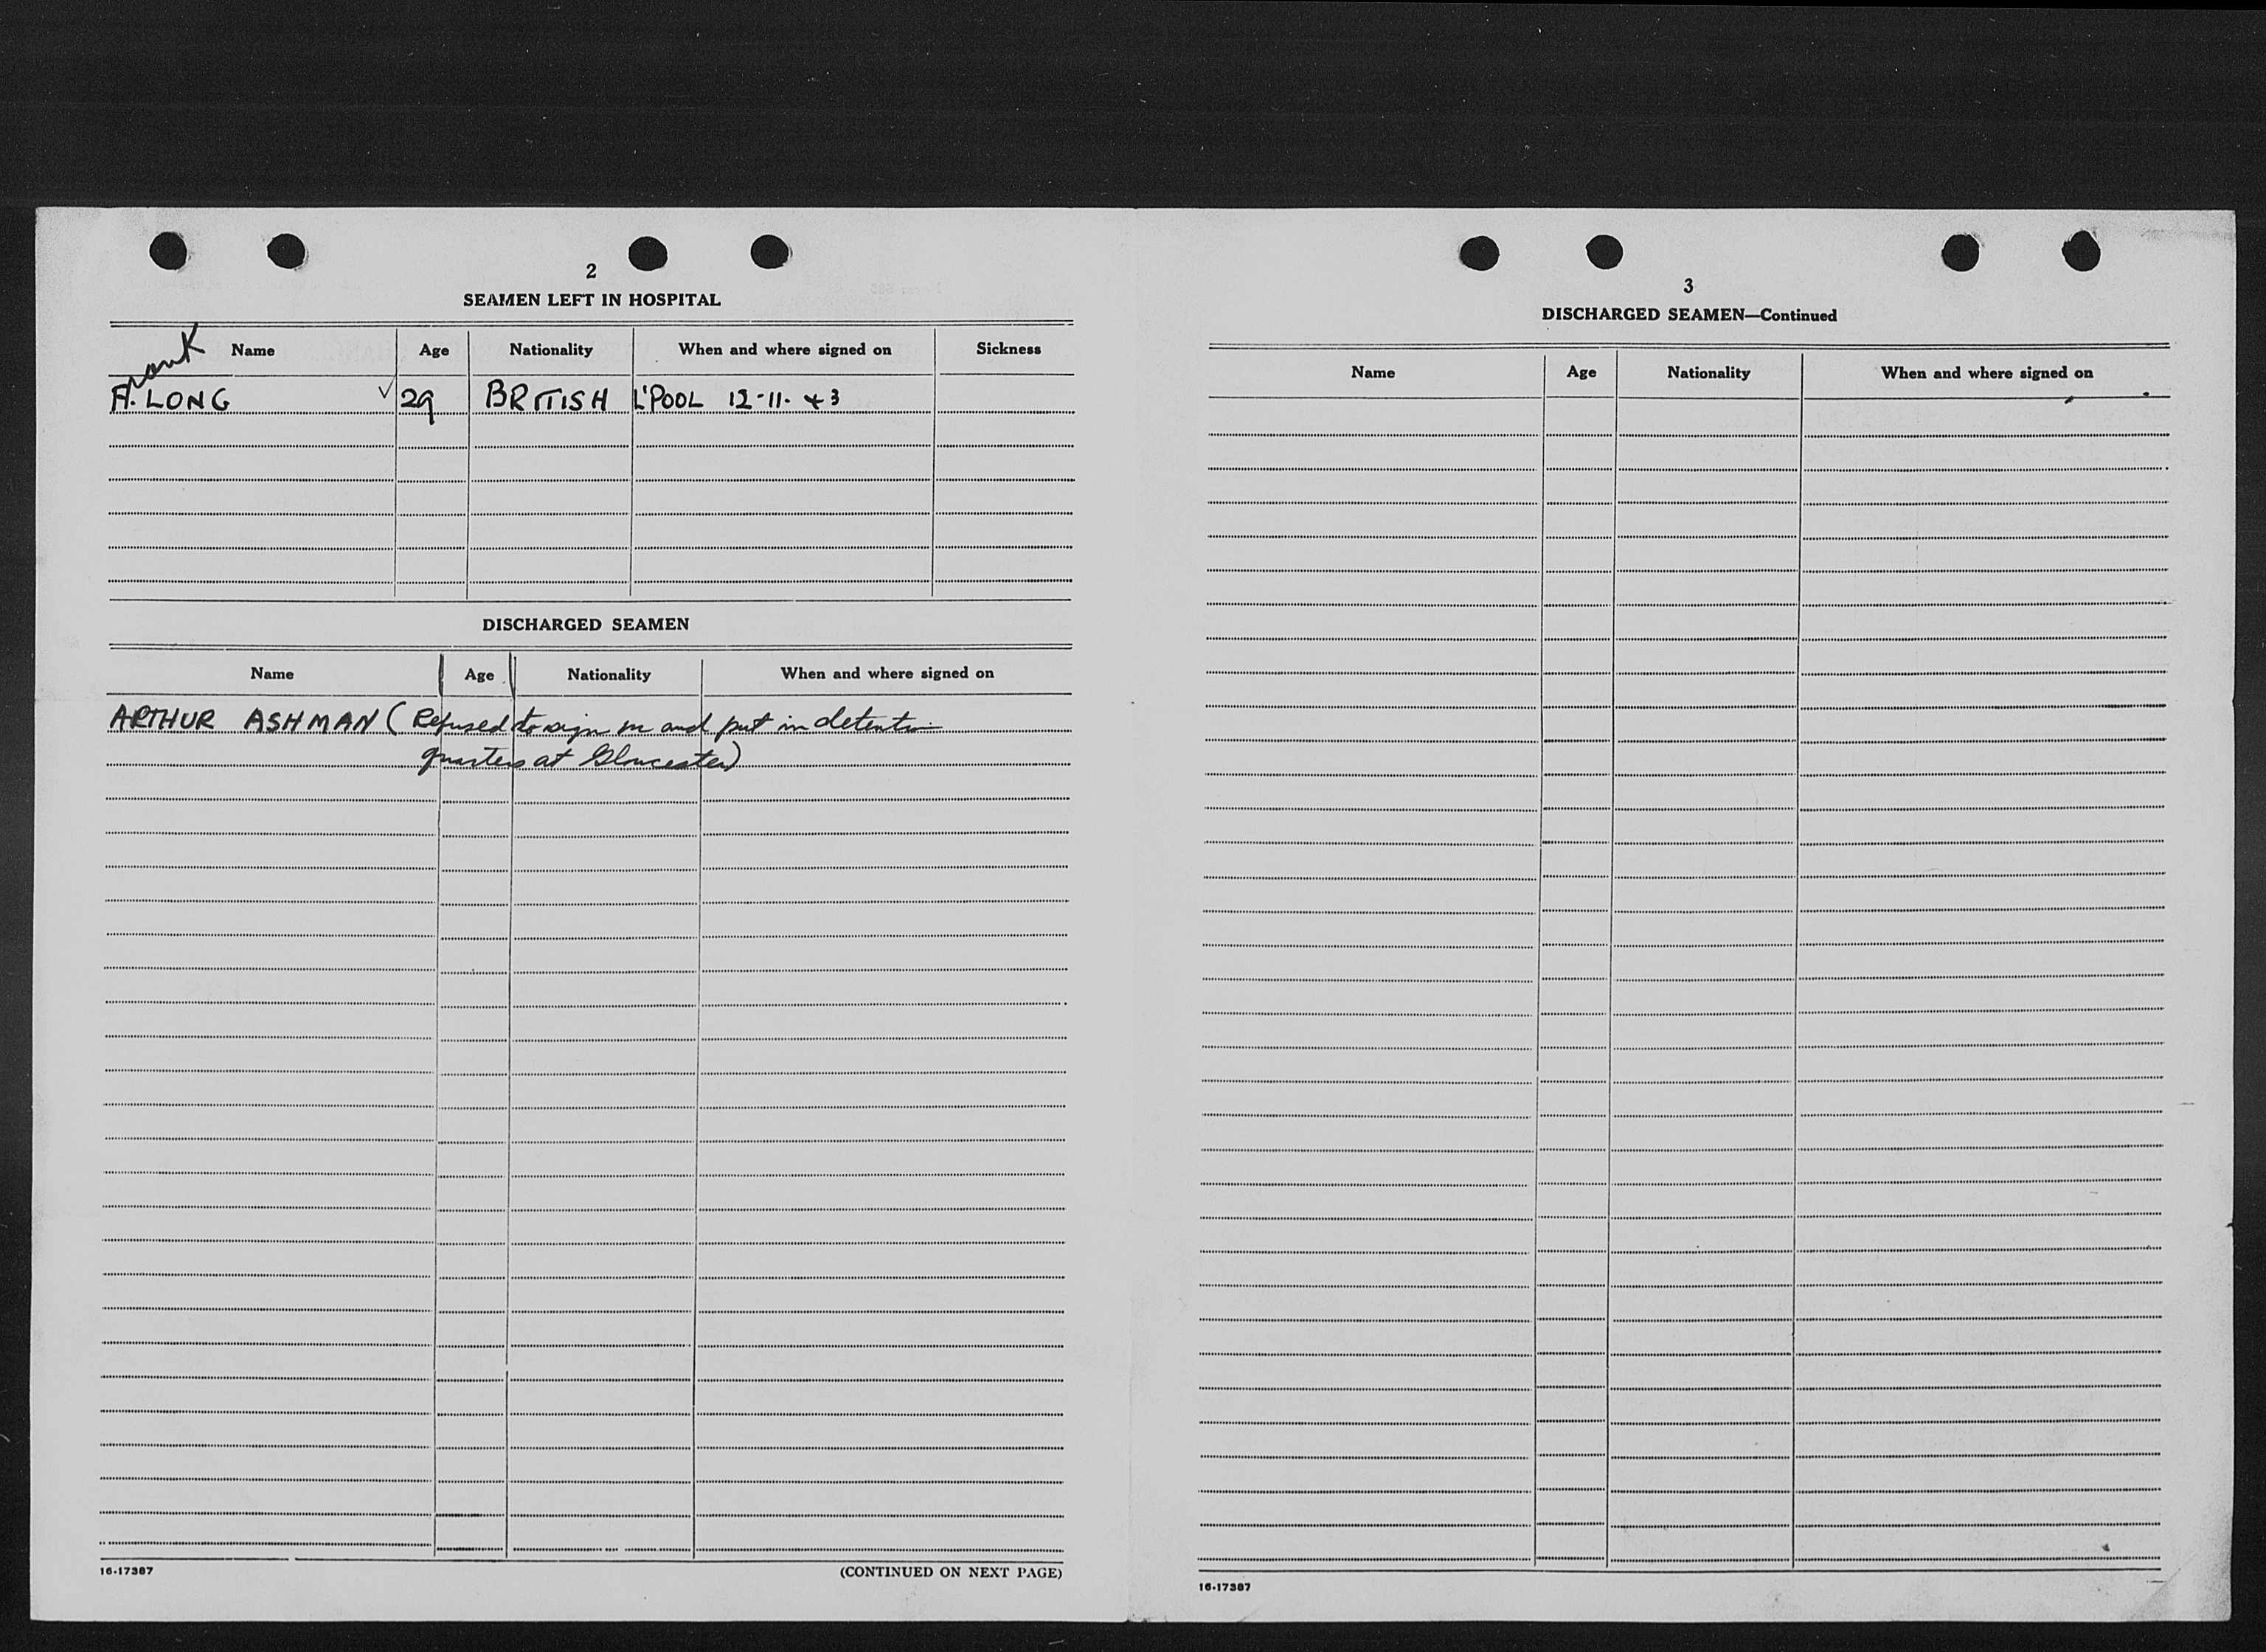 2
SEAMEN LEFT IN HOSPITAL
Name Age Nationality When and where signed on Sickness
Frank
F. LONG ✓ 29 BRITISH L'POOL 12-11-43
DISCHARGED SEAMEN
Name Age Nationality When and where signed on
ARTHUR ASHMAN (Refused to sign on and put in detention
quarters at Gloucester)
16-17387 (CONTINUED ON NEXT PAGE)
3
DISCHARGED SEAMEN—Continued
Name Age Nationality When and where signed on
16-17387